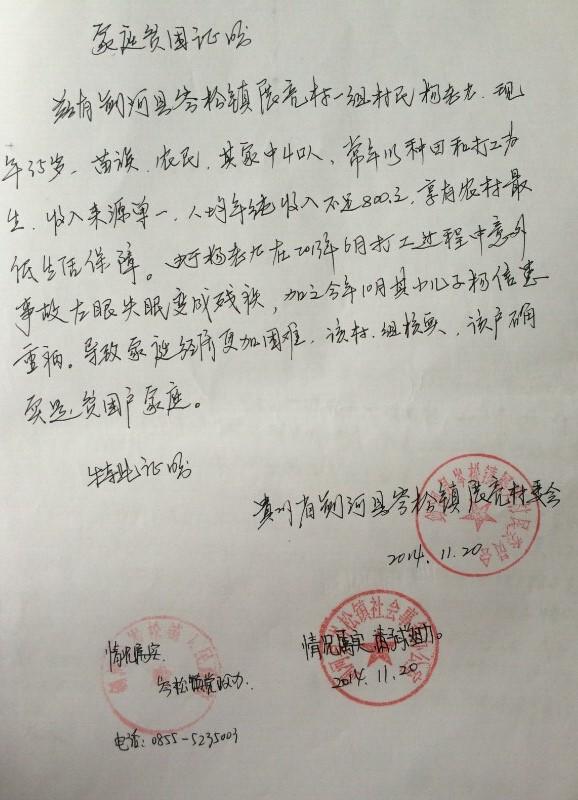 家庭贫困证明
兹有剑河县岑松镇展亮村一组村民杨老九、现
年35岁、苗族、农民、其家中4口人，常年以种田和打工为
生、收入来源单一、人均年纯收入不足800元，享有农村最
低生活保障。由于杨老九在2013年6月打工过程中意外
事故左眼失眠变成残疾，加之今年10月其小儿子杨信患
重病。导致家庭经济更加困难、该村、组核实、该户确
实是贫困户家庭。
特此证明
贵州省剑河县岑松镇展亮村委会
2014.11.20
情况属实 请予协助。
2014.11.20
情况属实
岑松镇党政办
电话：0855-5235003